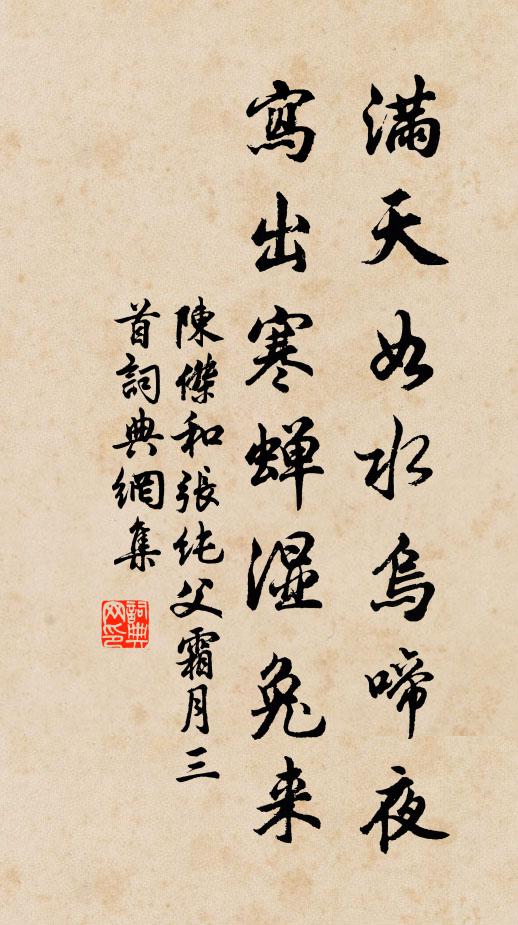 滿天如水烏啼夜
寫出寒蟬湿兔来
陳傑和張純父霜月三
首詞典網集
詞典网印